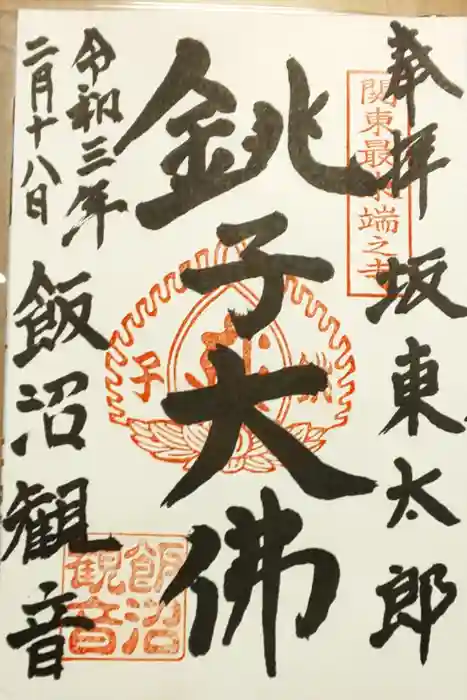 奉拝 坂東太郎
関東最東端之寺
銚子大佛
銚子
令和三年
二月十八日
飯沼観音
飯沼
観音